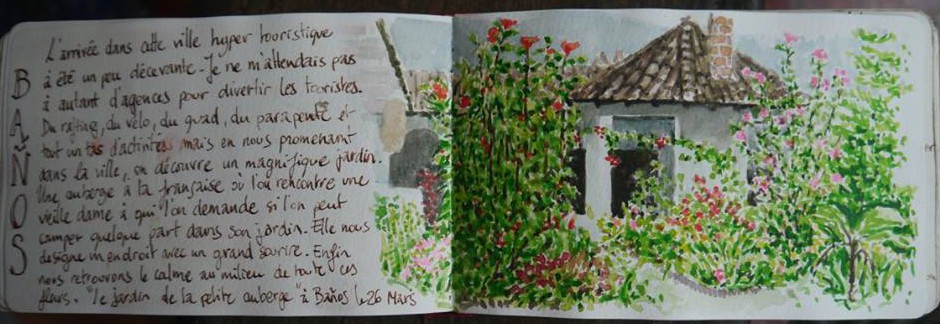 BAÑOS
L'arrivée dans cette ville hyper touristique
à été un peu décevante. Je ne m'attendais pas
à autant d'agences pour divertir les touristes.
Du rafting, du vélo, du quad, du parapente et
tout un tas d'activités mais en nous promenant
dans la ville, on découvre un magnifique jardin.
Une auberge à la française où l'on rencontre une
vieille dame à qui l'on demande si l'on peut
camper quelque part dans son jardin. Elle nous
designe un endroit avec un grand sourire. Enfin
nous retrouvons le calme au milieu de toute ces
fleurs. "le jardin de la petite auberge" à Baños le 26 Mars